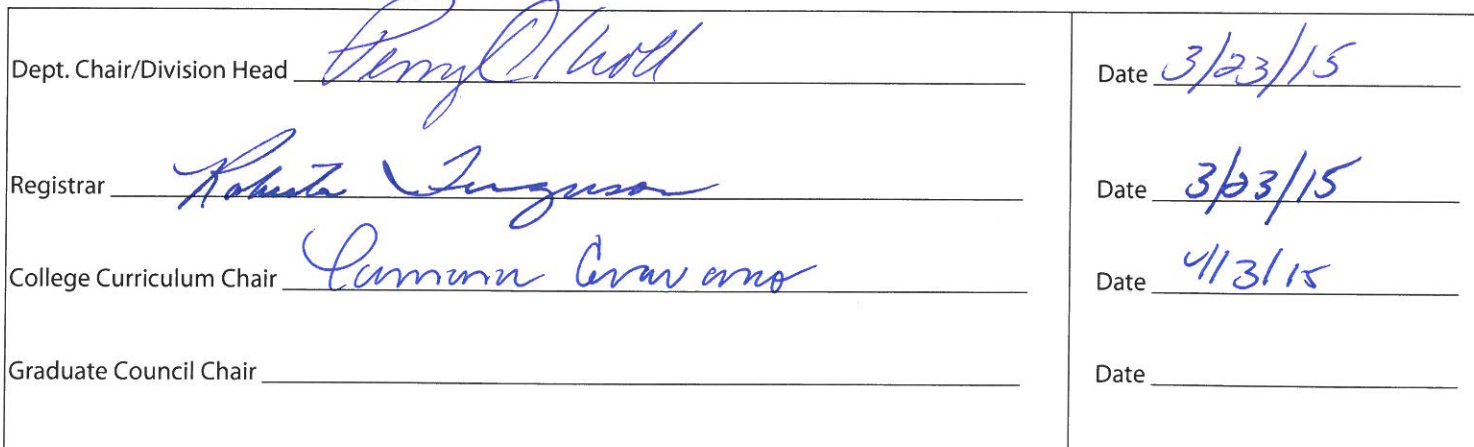 Dept. Chair/Division Head Date 3/23/15
Registrar Roberta Ferguson Date 3/23/15
College Curriculum Chair Date 4/13/15
Graduate Council Chair Date